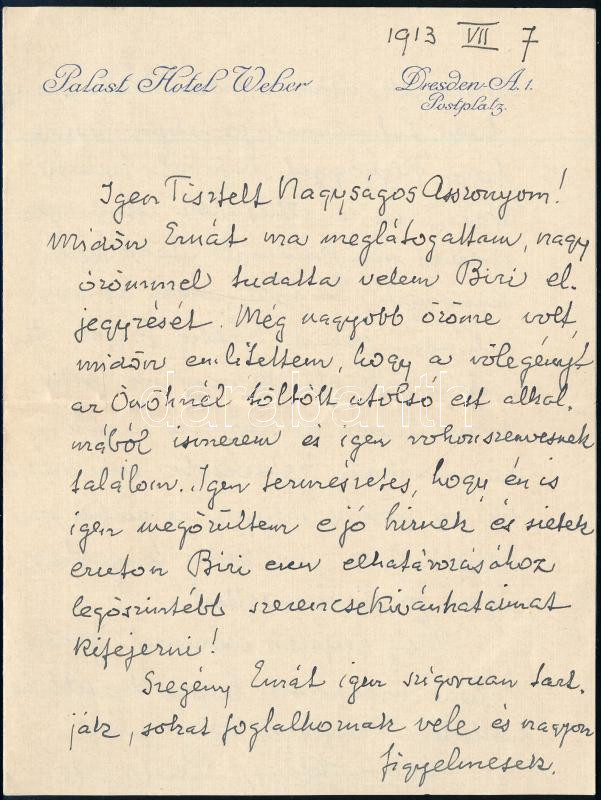 1913 VII 7
Palast Hotel Weber
Dresden-A. 1.
Postplatz.
Igen Tisztelt Nagyságos Asszonyom!
Midőn Ernát ma meglátogattam, nagy
örömmel tudatta velem Biri el-
jegyzését. Még nagyobb öröme volt,
midőn említettem, hogy a vőlegényt
az Önöknél töltött utolsó est alkal-
mából ismerem és igen rokonszenvesnek
találom. Igen természetes, hogy én is
igen megörültem e jó hírnek és sietek
ezuton Biri ezen elhatározásához
legőszintébb szerencsekivánataimat
kifejezni!
Szegény Ernát igen szigoruan tart-
ják, sokat foglalkoznak vele és nagyon
figyelmesek.
darabanth